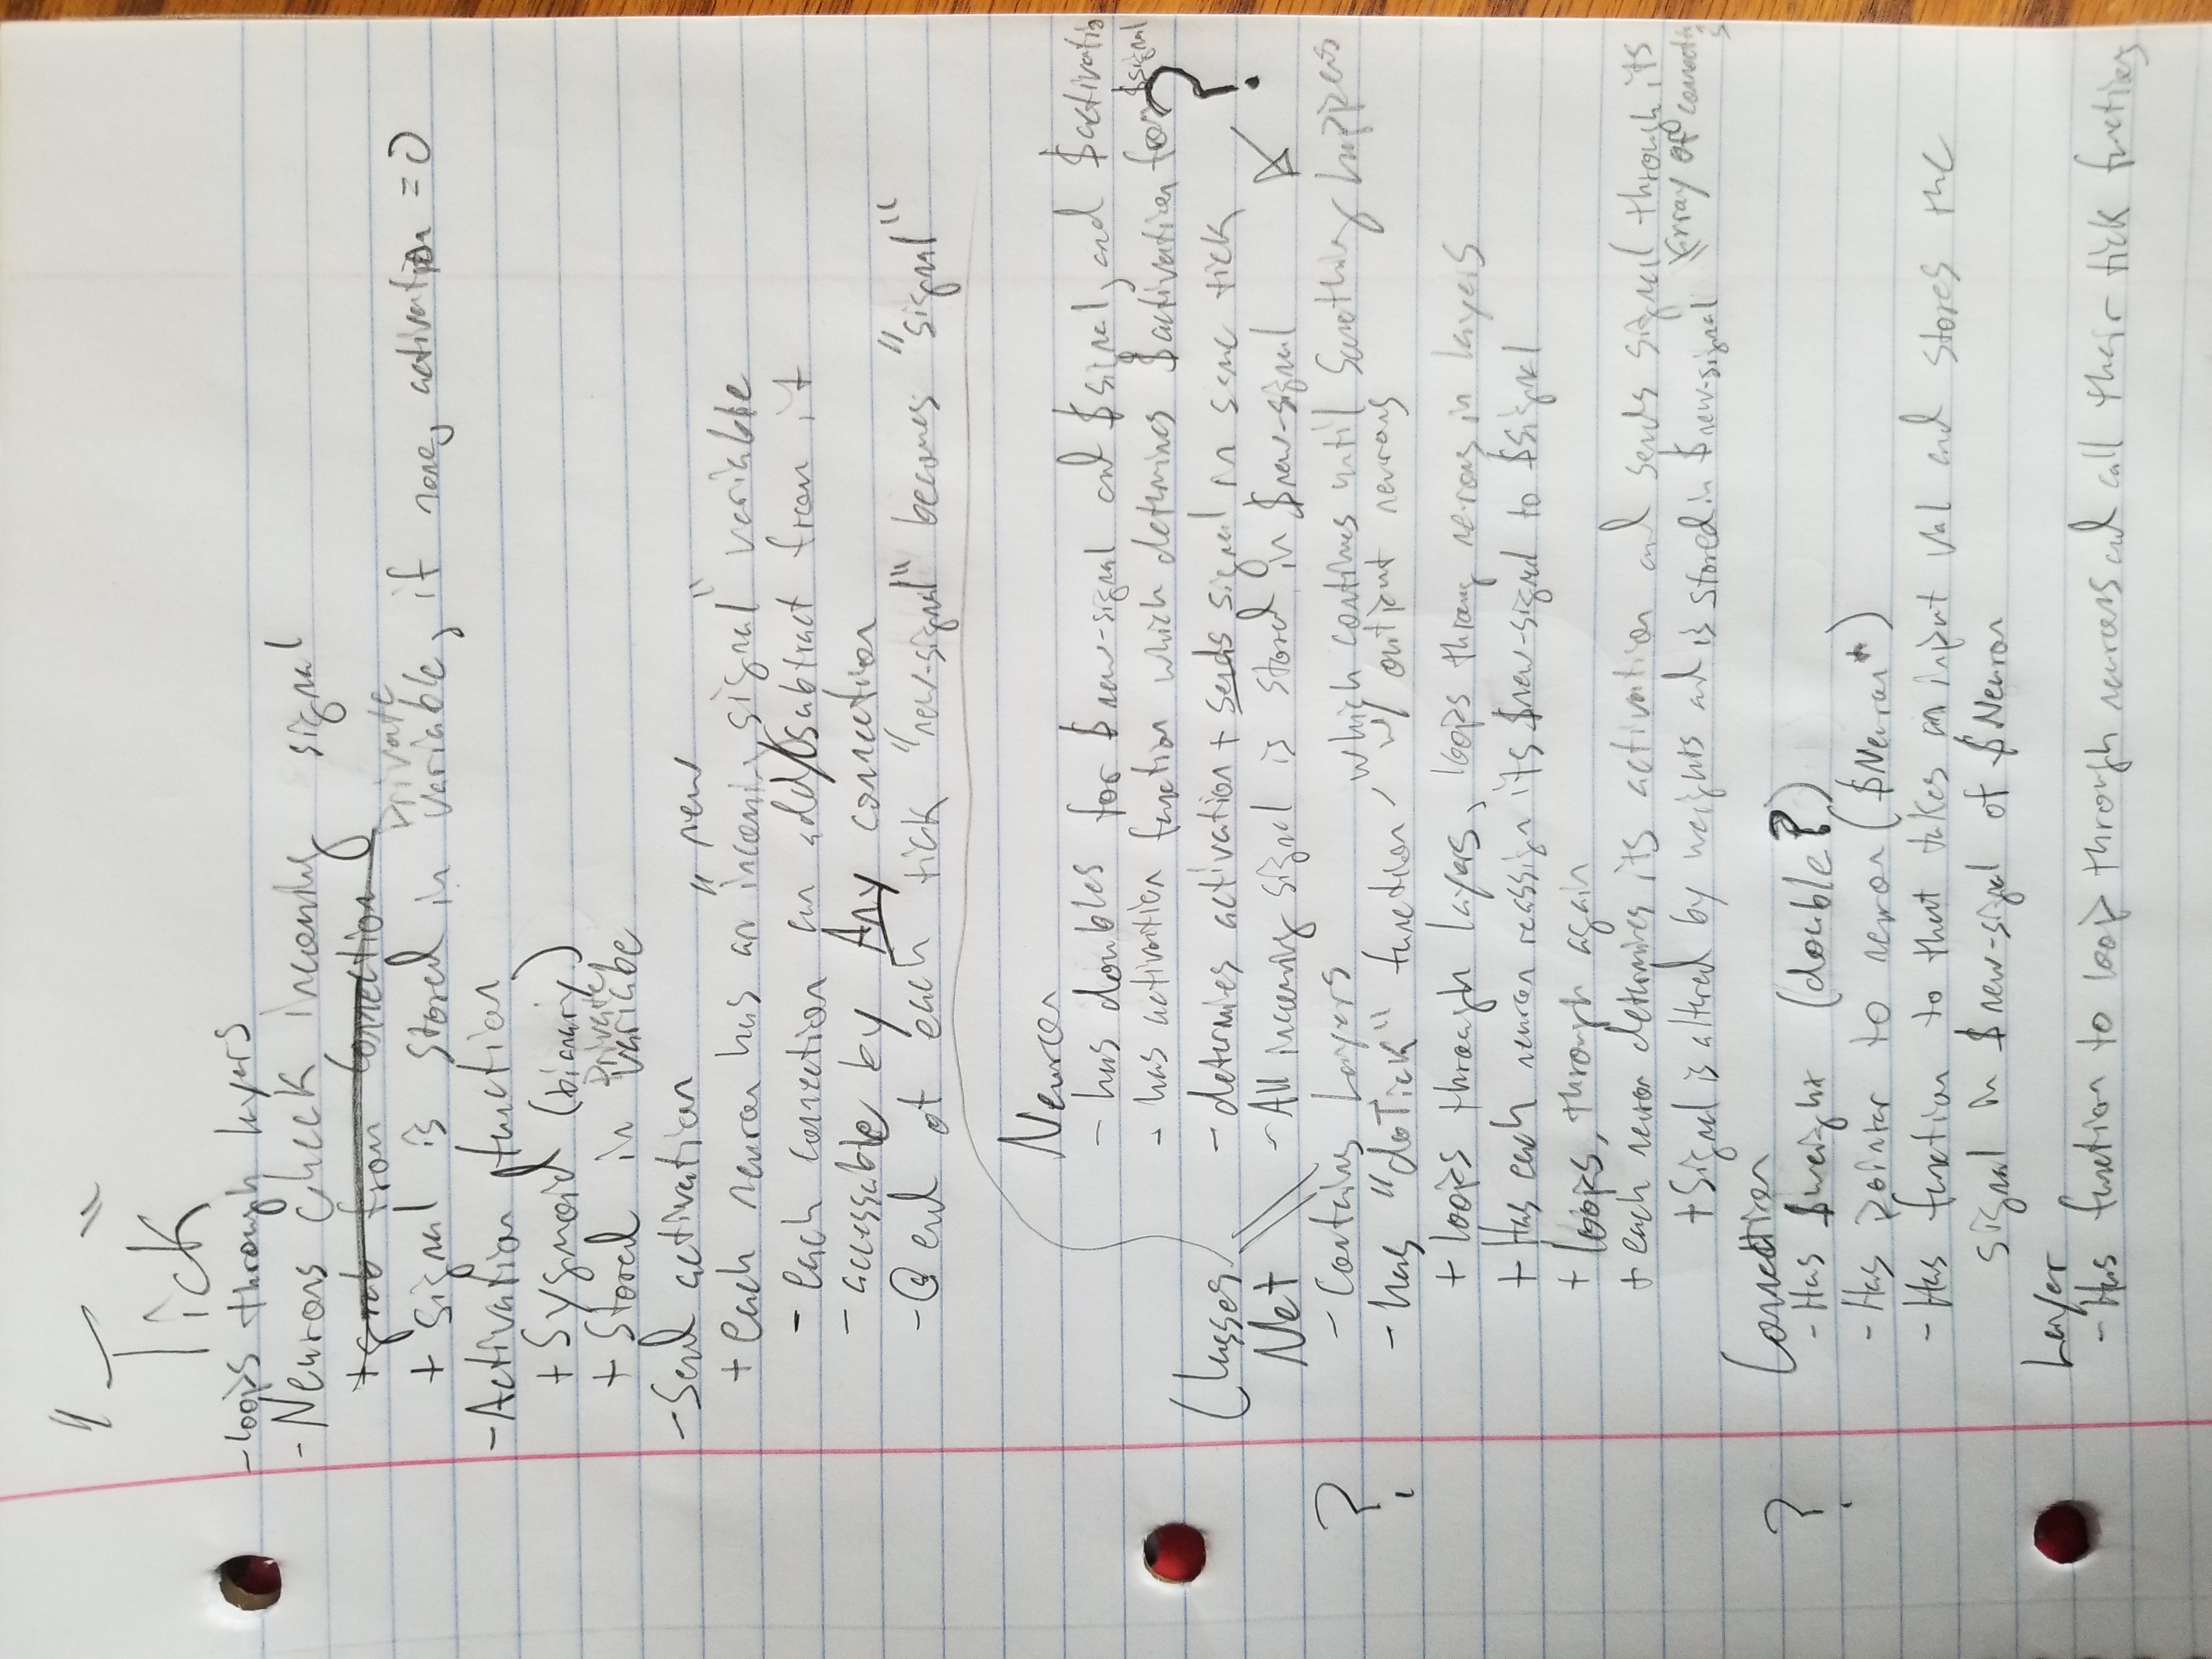 "Tick"
-loops through layers
-Neurons check incoming signal
+grab from connection
private
+ signal is stored in variable, if none, activation = 0
-Activation function
+ Sygmoid (binary)
private
+ Stored in variabe
-Send activation
"new
+ each neuron has an incoming signal" variable
- each connection can add/subtract from it
- accessable by Any connection
-@ end of each tick "new-signal" becomes "signal"
Neuron
- has doubles for $new-signal and $signal, and $activatio
- has activation function which determines $activation from $signal
?
Classes
- determines activation + sends signal in same tick
Net
- All incoming signal is stored in $new-signal
?
- Contains Layers
- has "doTick" function - which continues until Something happens
w/ output neurons
+ loops through layers, loops throug nerons in layers
+ Has each neuron reassign its $new-signal to $signal
+ loops, through again
+ each neuron determines its activation and sends signal through its
array of connections
+ Signal is altered by weights and is stored in $new-signal
Connection
?
- Has $weight (double?)
- Has pointer to neuron ($Neuron*)
- Has function to that takes an input val and stores the
signal in $new-signal of $Neuron
Layer
- Has function to loop through neurons and call their tick functions